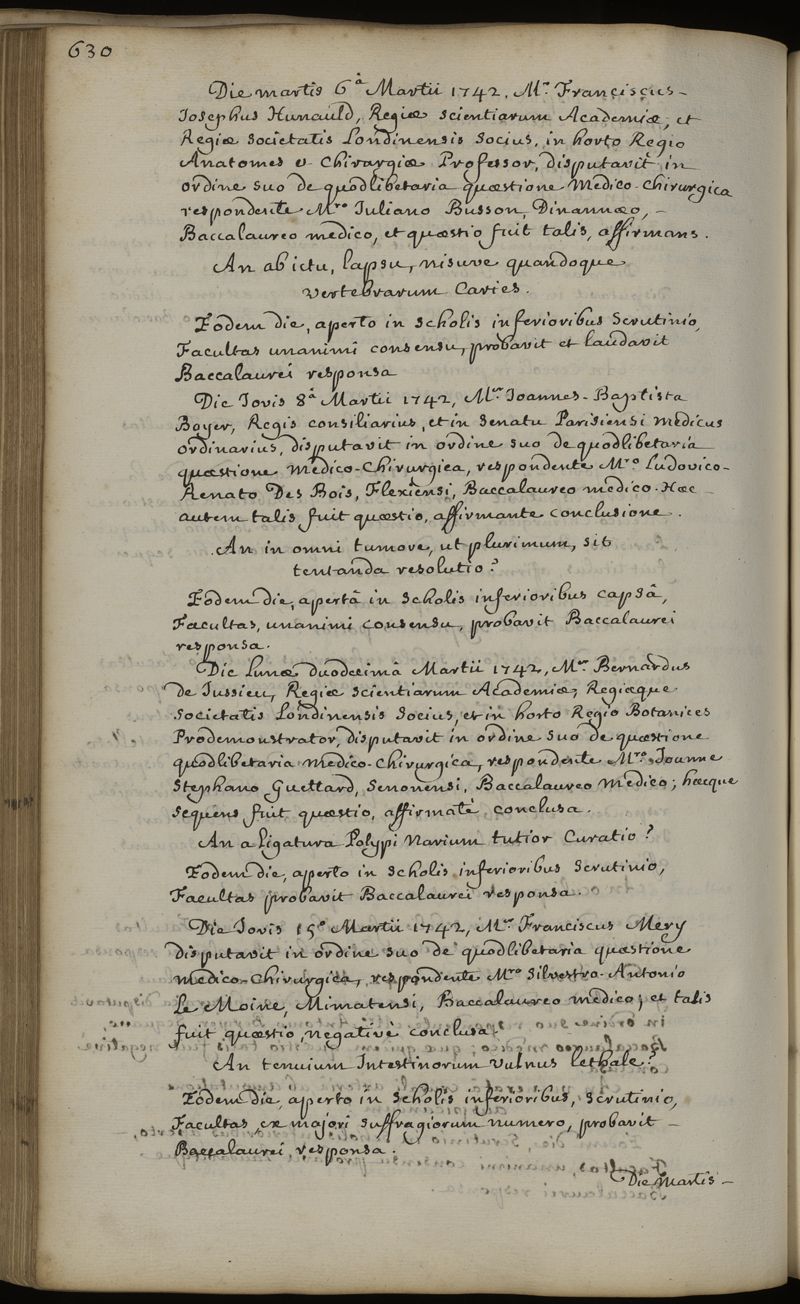 630
Die martis 6.â Martii 1742. M.r Franciscus-
Iosephus Hunauld, Regiæ Scientiarum Academiæ, et
Regiæ Societatis Londinensis Socius, in horto Regio
Anatomes & Chirurgiæ Professor, disputavit in
ordine suo de quodlibetaria quæstione Medico-Chirurgica
respondente M.ro Iuliano Busson, Dinannæo, -
Baccalaureo medico, et quæstio fuit talis, affirmans.
An ab ictu, lapsu, nisuve quandoque
vertebrarum Caries.
Eodem die, aperto in Scholis inferioribus Scrutinio,
Facultas unanimi consensu, probavit et laudavit
Baccalaurei responsa
Die Iovis 8.â Martii 1742, M.er Ioannes-Baptista
Boyer, Regis consiliarius, et in Senatu Parisiensi Medicus
ordinarius, disputavit in ordine suo de quodlibetaria
quæstione Medico-Chirurgica, respondente M.ro Ludovico-
Renato Des Bois, Flexiensi, Baccalaureo medico. Hæc
autem talis fuit quæstio, affirmante conclusione.
An in omni tumore, ut plurimum, sit
tentanda resolutio?
Eodem die, apertâ in Scholis inferioribus capsâ,
Facultas, unanimi consensu, probavit Baccalaurei
responsa.
Die Lunæ duodecimâ Martii 1742, M.er Bernardus
de Iussieu, Regiæ Scientiarum Academiæ, Regiæque
Societatis Londinensis Socius, et in horto Regio Botanices
Prodemonstrator, disputavit in ordine suo de quæstione
quodlibetaria medico-Chirurgica, respondente M.ro Ioanne
Stephano Guettard, Senonensi, Baccalaureo Medico; hæcque
Sequens fuit quæstio, affirmatè conclusa.
An a ligatura Polypi Narium tutior Curatio?
Eodem die, aperto in Scholis inferioribus Scrutinio,
Facultas probavit Baccalaurei responsa.
Die Iovis 15.e Martii 1742, M.er Franciscus Mery
disputavit in ordine suo de quodlibetaria quæstione
medico-Chirurgica, respondente M.ro Silvestro-Antonio
Le Moine, Mimatensi, Baccalaureo medico; et talis
fuit quæstio, negativè conclusa.
An tenuium Intestinorum vulnus lethale?
Eodem die, aperto in Scholis inferioribus, Scrutinio,
Facultas ex majori Suffragiorum numero, probavit -
Baccalaurei, responsa.
Die Martis -